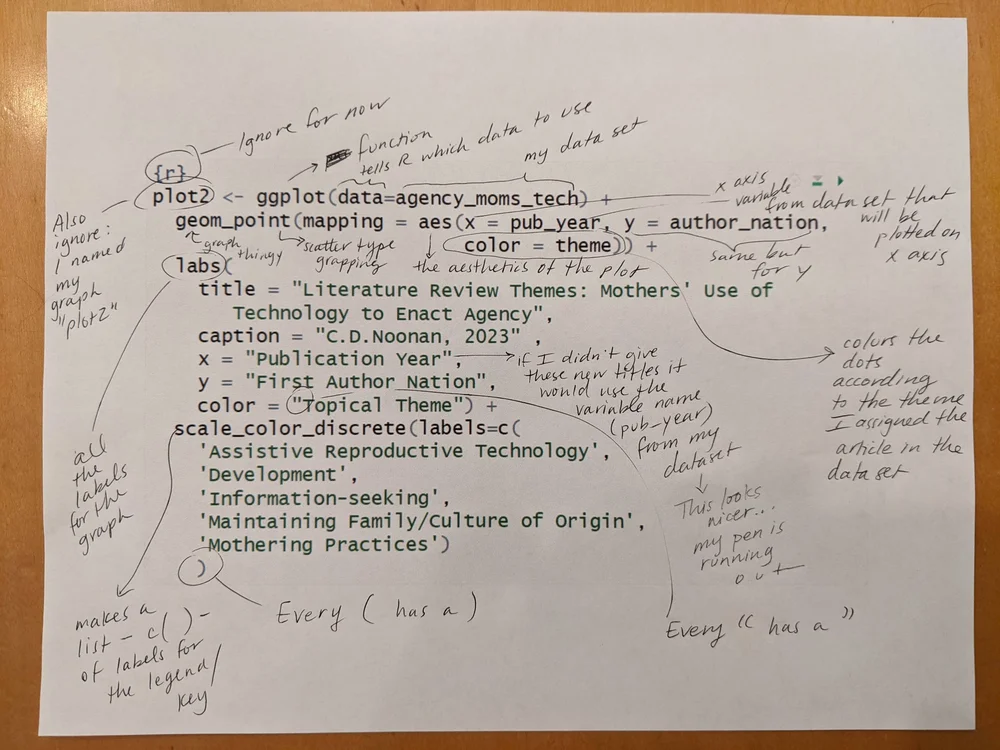 Ignore for now
function
tells R which data to use
my data set
{r}
plot2 <- ggplot(data=agency_moms_tech) +
geom_point(mapping = aes(x = pub_year, y = author_nation,
color = theme)) +
labs(
title = "Literature Review Themes: Mothers' Use of
Technology to Enact Agency",
caption = "C.D.Noonan, 2023" ,
x = "Publication Year",
y = "First Author Nation",
color = "Topical Theme") +
scale_color_discrete(labels=c(
'Assistive Reproductive Technology',
'Development',
'Information-seeking',
'Maintaining Family/Culture of Origin',
'Mothering Practices')
)
Also
ignore:
I named
my
graph
"plot2"
graph
thingy
scatter type
grapping
the aesthetics of the plot
x axis
variable
from data set that
will be
plotted on
x axis
same but
for y
if I didn't give
these new titles it
would use the
variable name
(pub_year)
from my
dataset
This looks
nicer...
my pen is
running
out
colors the
dots
according
to the theme
I assigned the
article in the
data set
all
the
labels
for the
graph
makes a
list - c( ) -
of labels for
the legend/
key
Every ( has a )
Every “ has a ”